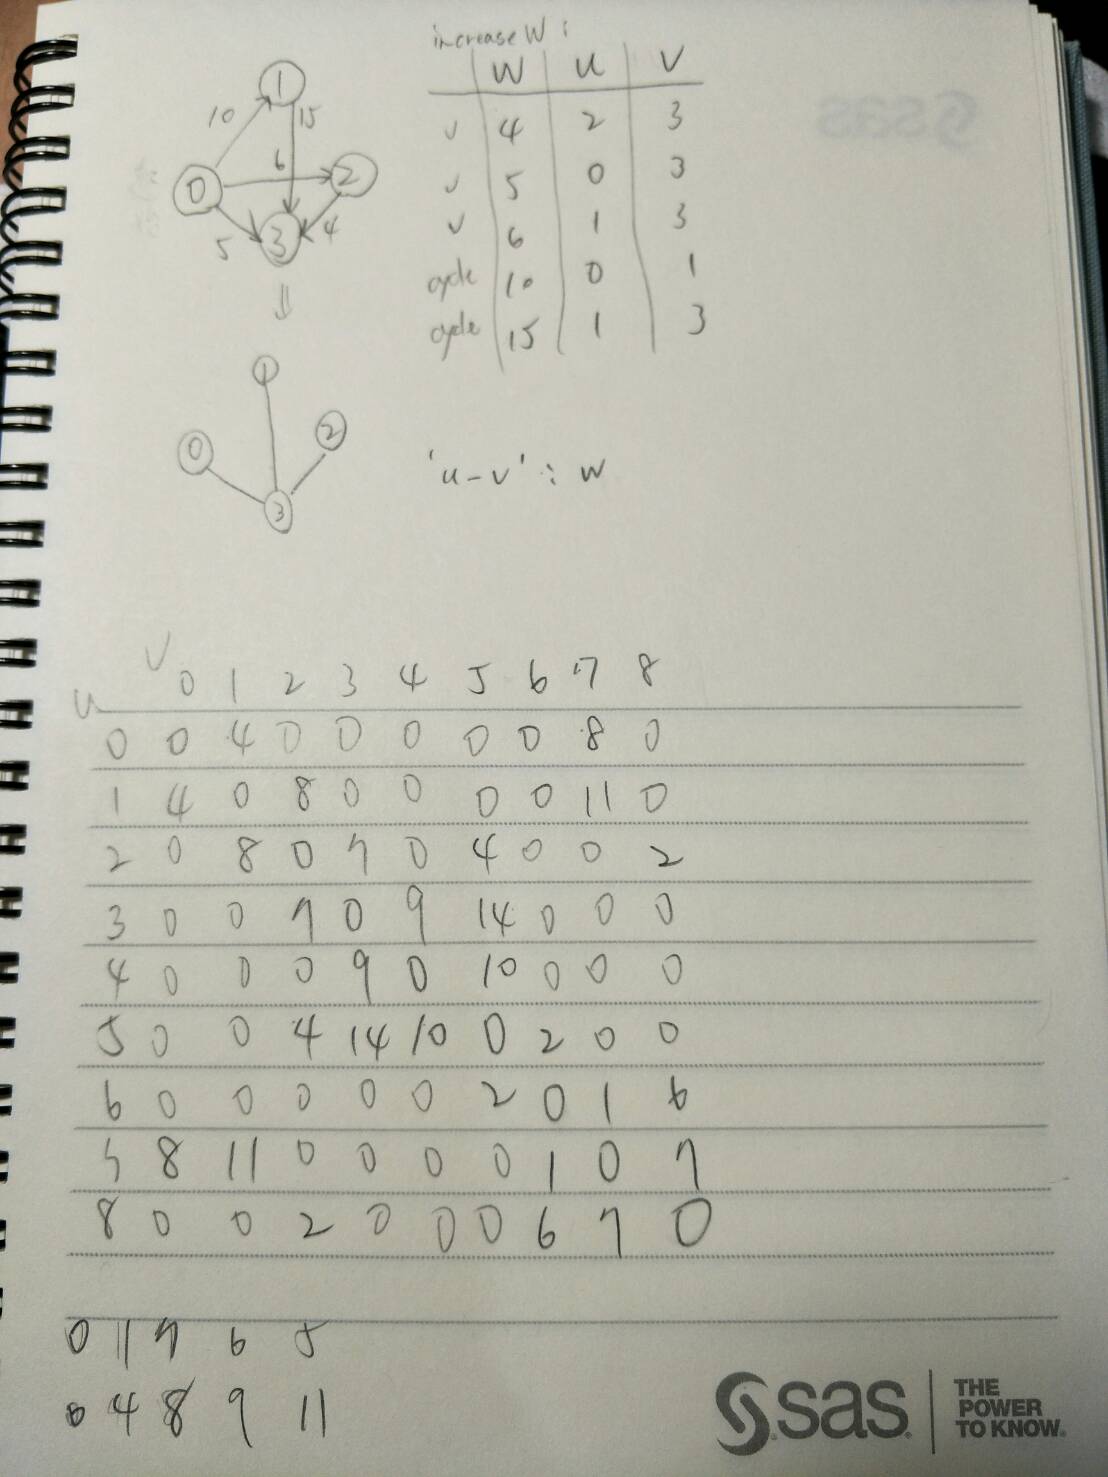 increase W :
W u v
v 4 2 3
v 5 0 3
v 6 1 3
cycle 10 0 1
cycle 15 1 3
1
10 15
6
0 2
5 3 4
1
0 2
3
'u-v' : w
sas
V
u 0 1 2 3 4 5 6 7 8
0 0 4 0 0 0 0 0 8 0
1 4 0 8 0 0 0 0 11 0
2 0 8 0 7 0 4 0 0 2
3 0 0 7 0 9 14 0 0 0
4 0 0 0 9 0 10 0 0 0
5 0 0 4 14 10 0 2 0 0
6 0 0 0 0 0 2 0 1 6
7 8 11 0 0 0 0 1 0 7
8 0 0 2 0 0 0 6 7 0
0 1 7 6 5
0 4 8 9 11
sas THE
POWER
TO KNOW.